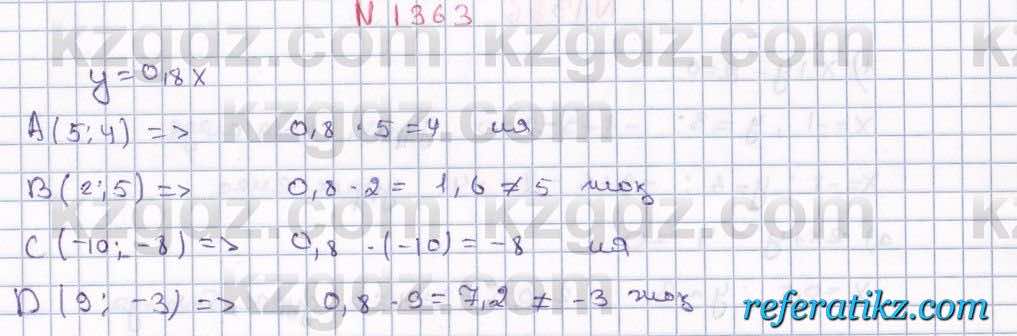 N 1363
kzgdz.com kzgdz.com
y = 0,8x
A (5; 4) => 0,8 · 5 = 4 ия
kzgdz.com
B (2; 5) => 0,8 · 2 = 1,6 ≠ 5 жоқ
kzgdz.com kzgdz.com
C (-10; -8) => 0,8 · (-10) = -8 ия
D (9; -3) => 0,8 · 9 = 7,2 ≠ -3 жоқ
kzgdz.com
referatikz.com